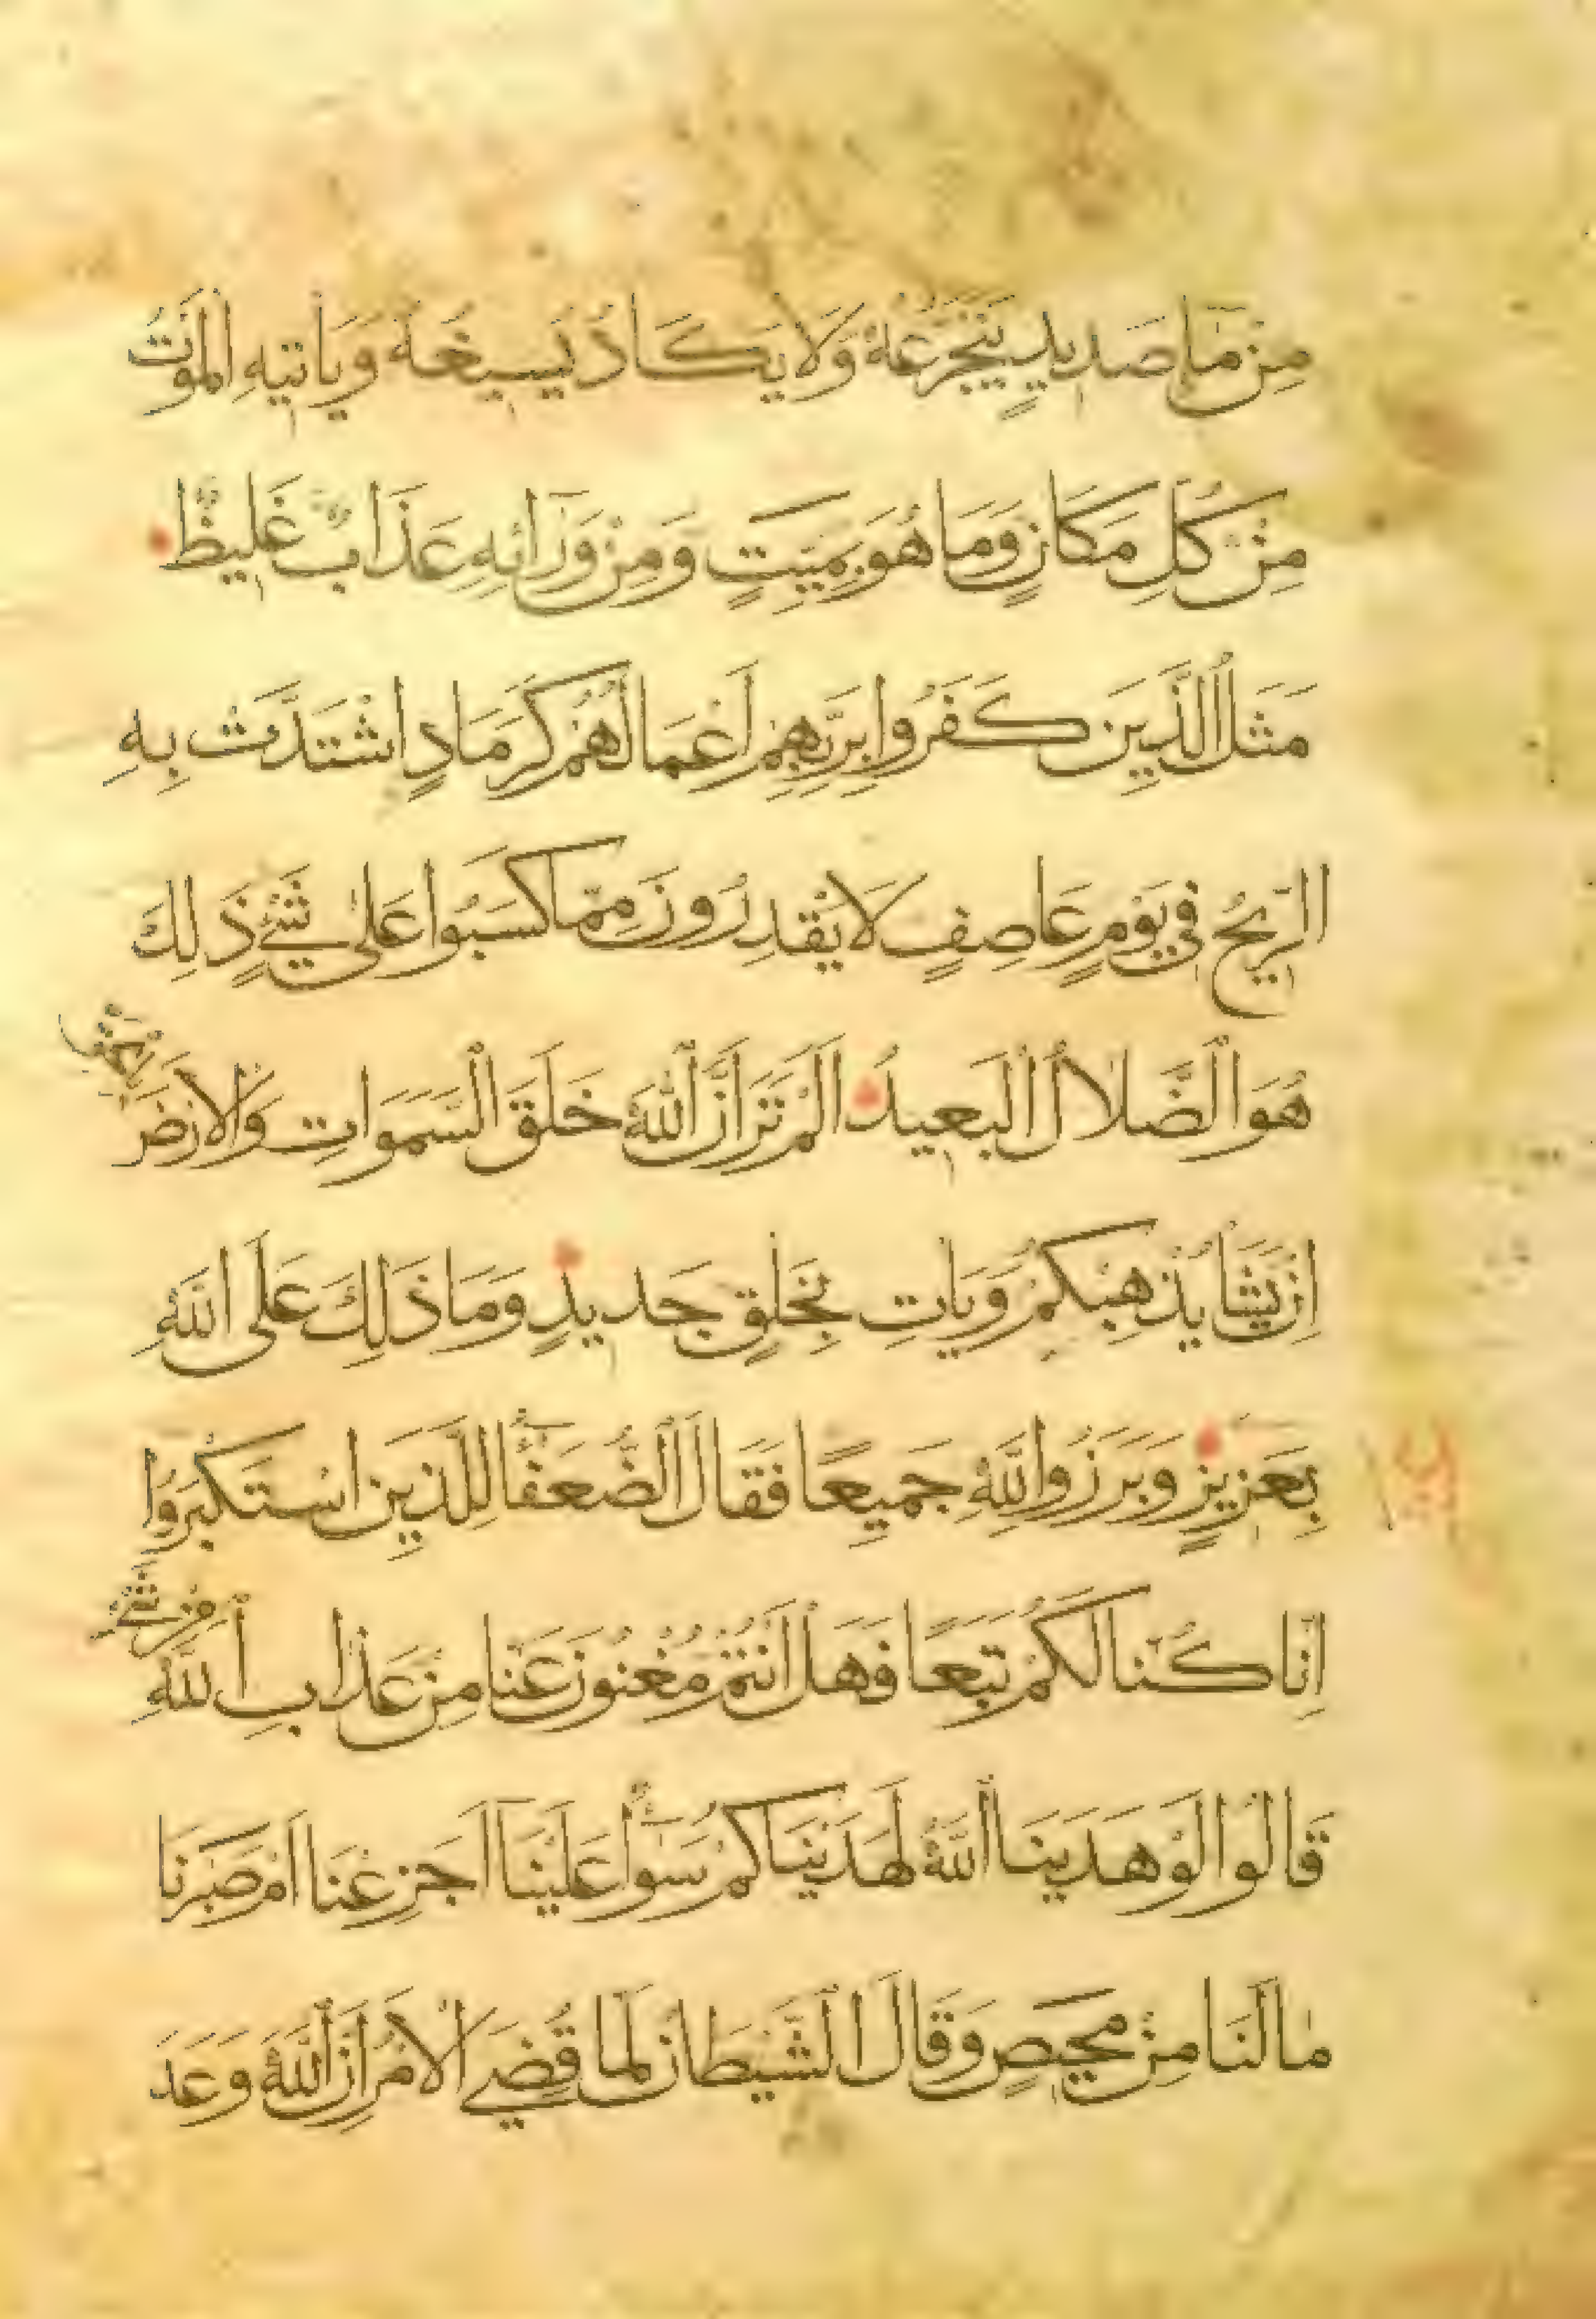 مِنْ مَآءٍ صَدِيدٍ يَتَجَرَّعُهُ وَلَا يَكَادُ يُسِيغُهُ وَيَأْتِيهِ الْمَوْتُ
مِنْ كُلِّ مَكَانٍ وَمَا هُوَ بِمَيِّتٍ وَمِنْ وَرَآئِهِ عَذَابٌ غَلِيظٌ
مَثَلُ الَّذِينَ كَفَرُوا بِرَبِّهِمْ أَعْمَالُهُمْ كَرَمَادٍ اشْتَدَّتْ بِهِ
الرِّيحُ فِي يَوْمٍ عَاصِفٍ لَا يَقْدِرُونَ مِمَّا كَسَبُوا عَلَى شَيْءٍ ذَلِكَ
هُوَ الضَّلَالُ الْبَعِيدُ أَلَمْ تَرَ أَنَّ اللَّهَ خَلَقَ السَّمَوَاتِ وَالْأَرْضَ بِالْحَقِّ
إِنْ يَشَأْ يُذْهِبْكُمْ وَيَأْتِ بِخَلْقٍ جَدِيدٍ وَمَا ذَلِكَ عَلَى اللَّهِ
بِعَزِيزٍ وَبَرَزُوا لِلَّهِ جَمِيعًا فَقَالَ الضُّعَفَٰٓؤُا لِلَّذِينَ اسْتَكْبَرُوا
إِنَّا كُنَّا لَكُمْ تَبَعًا فَهَلْ أَنْتُمْ مُغْنُونَ عَنَّا مِنْ عَذَابِ اللَّهِ مِنْ شَيْءٍ
قَالُوا لَوْ هَدَينَا اللَّهُ لَهَدَيْنَاكُمْ سَوَآءٌ عَلَيْنَآ أَجَزِعْنَا أَمْ صَبَرْنَا
مَا لَنَا مِنْ مَحِيصٍ وَقَالَ الشَّيْطَانُ لَمَّا قُضِيَ الْأَمْرُ إِنَّ اللَّهَ وَعَدَ